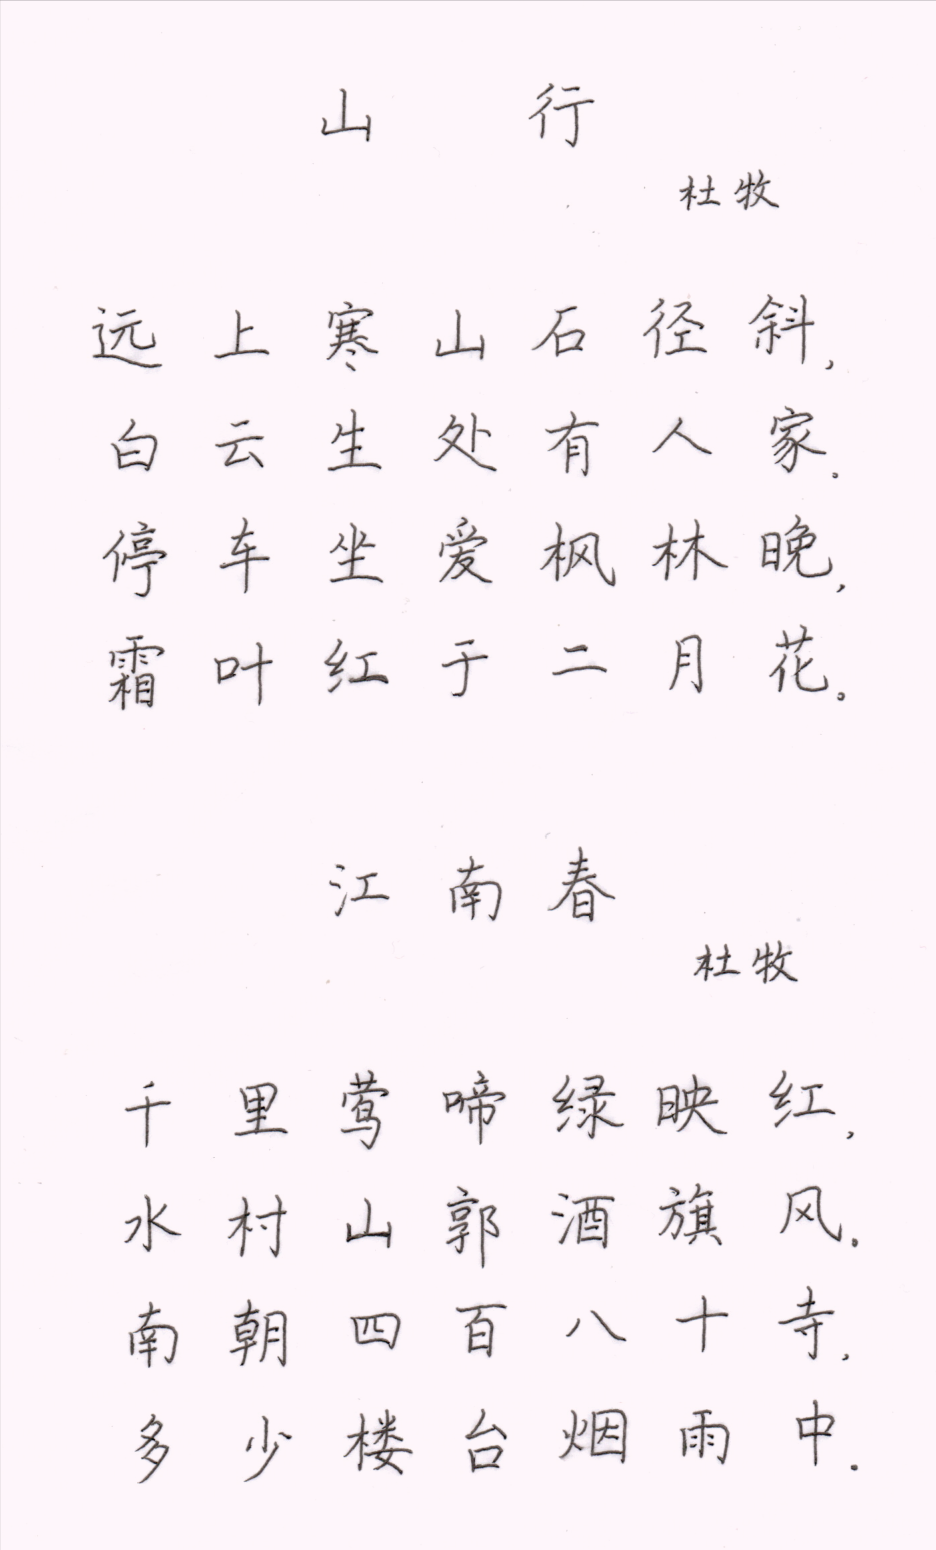 山行
杜牧
远上寒山石径斜，
白云生处有人家.
停车坐爱枫林晚，
霜叶红于二月花.
江南春
杜牧
千里莺啼绿映红，
水村山郭酒旗风.
南朝四百八十寺，
多少楼台烟雨中.